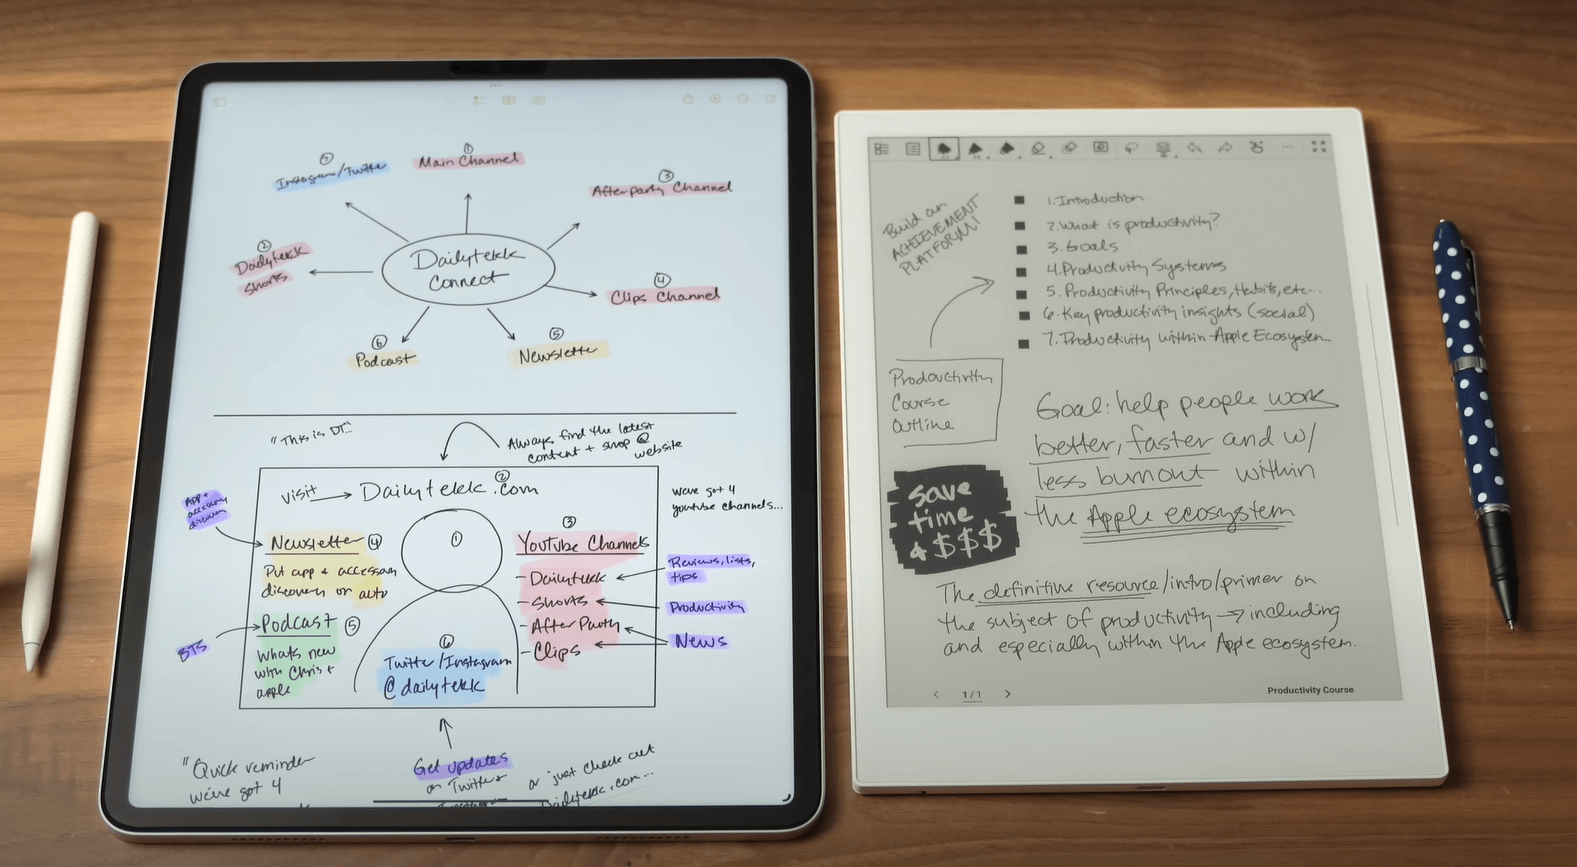 ①
Main Channel
⑦
Instagram/Twitter
③
Afterparty Channel
②
Dailytekk
Shorts
Dailytekk
Connect
④
Clips Channel
⑥
Podcast
⑤
Newsletter
"This is DT..."
Always find the latest
content + shop @
website
visit → Dailytekk.com
②
App +
accessory
discovery
Newsletter ④
Put app + accessory
discovery on auto
BTS
Podcast ⑤
Whats new
with Chris +
apple
①
⑥
Twitter/Instagram
@dailytekk
③
YouTube Channels
- Dailytekk
- Shorts
- After Party
- Clips
we've got 4
youtube channels...
Reviews, lists,
tips
Productivity
News
"Quick reminder
we've got 4
Get updates
on Twitter
or just check out
Dailytekk.com...
Build an
ACHIEVEMENT
PLATFORM!
1. Introduction
2. What is productivity?
3. Goals
4. Productivity Systems
5. Productivity Principles, Habits, etc...
6. Key productivity insights (social)
7. Productivity within Apple Ecosystem
Productivity
Course
Outline
Goal: help people work
better, faster and w/
less burnout within
the Apple ecosystem
save
time
+ $$$
The definitive resource/intro/primer on
the subject of productivity → including
and especially within the Apple ecosystem.
< 1/1 >
Productivity Course